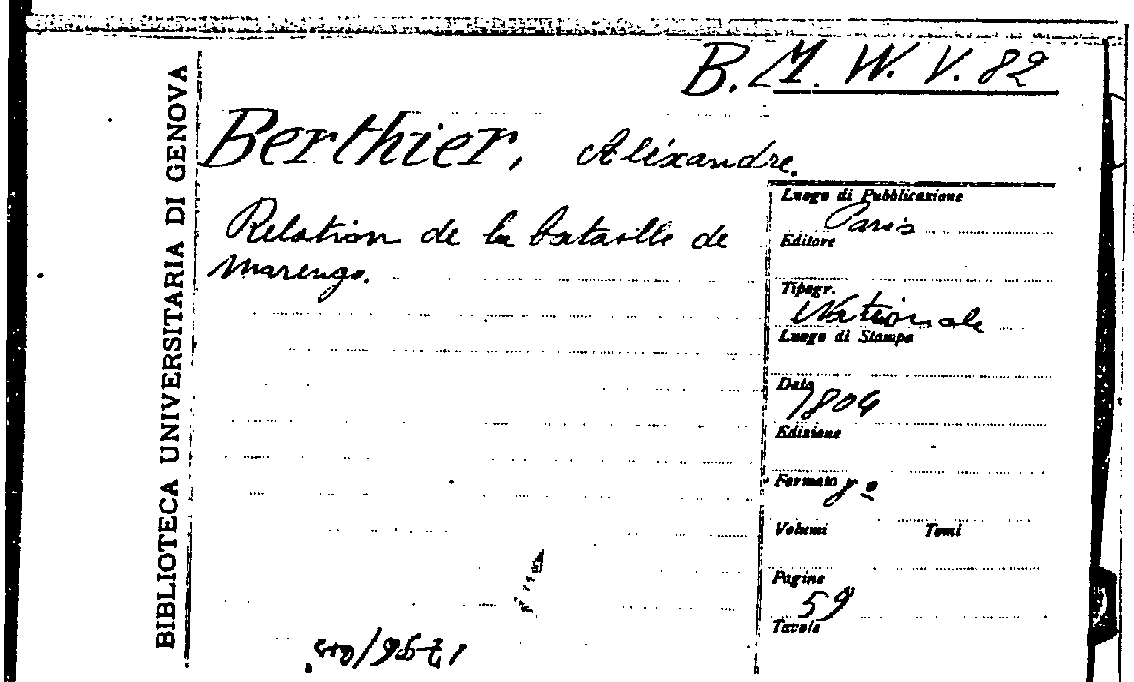 B.M. W. V. 82
BIBLIOTECA UNIVERSITARIA DI GENOVA
Berthier, Aléxandre.
Relation de la bataille de
Marengo.
Luogo di Pubblicazione
Paris
Editore
Tipogr.
Nationale
Luogo di Stampa
Data
1804
Edizione
Formato 8º
Volumi Tomi
Pagine
59
Tavole